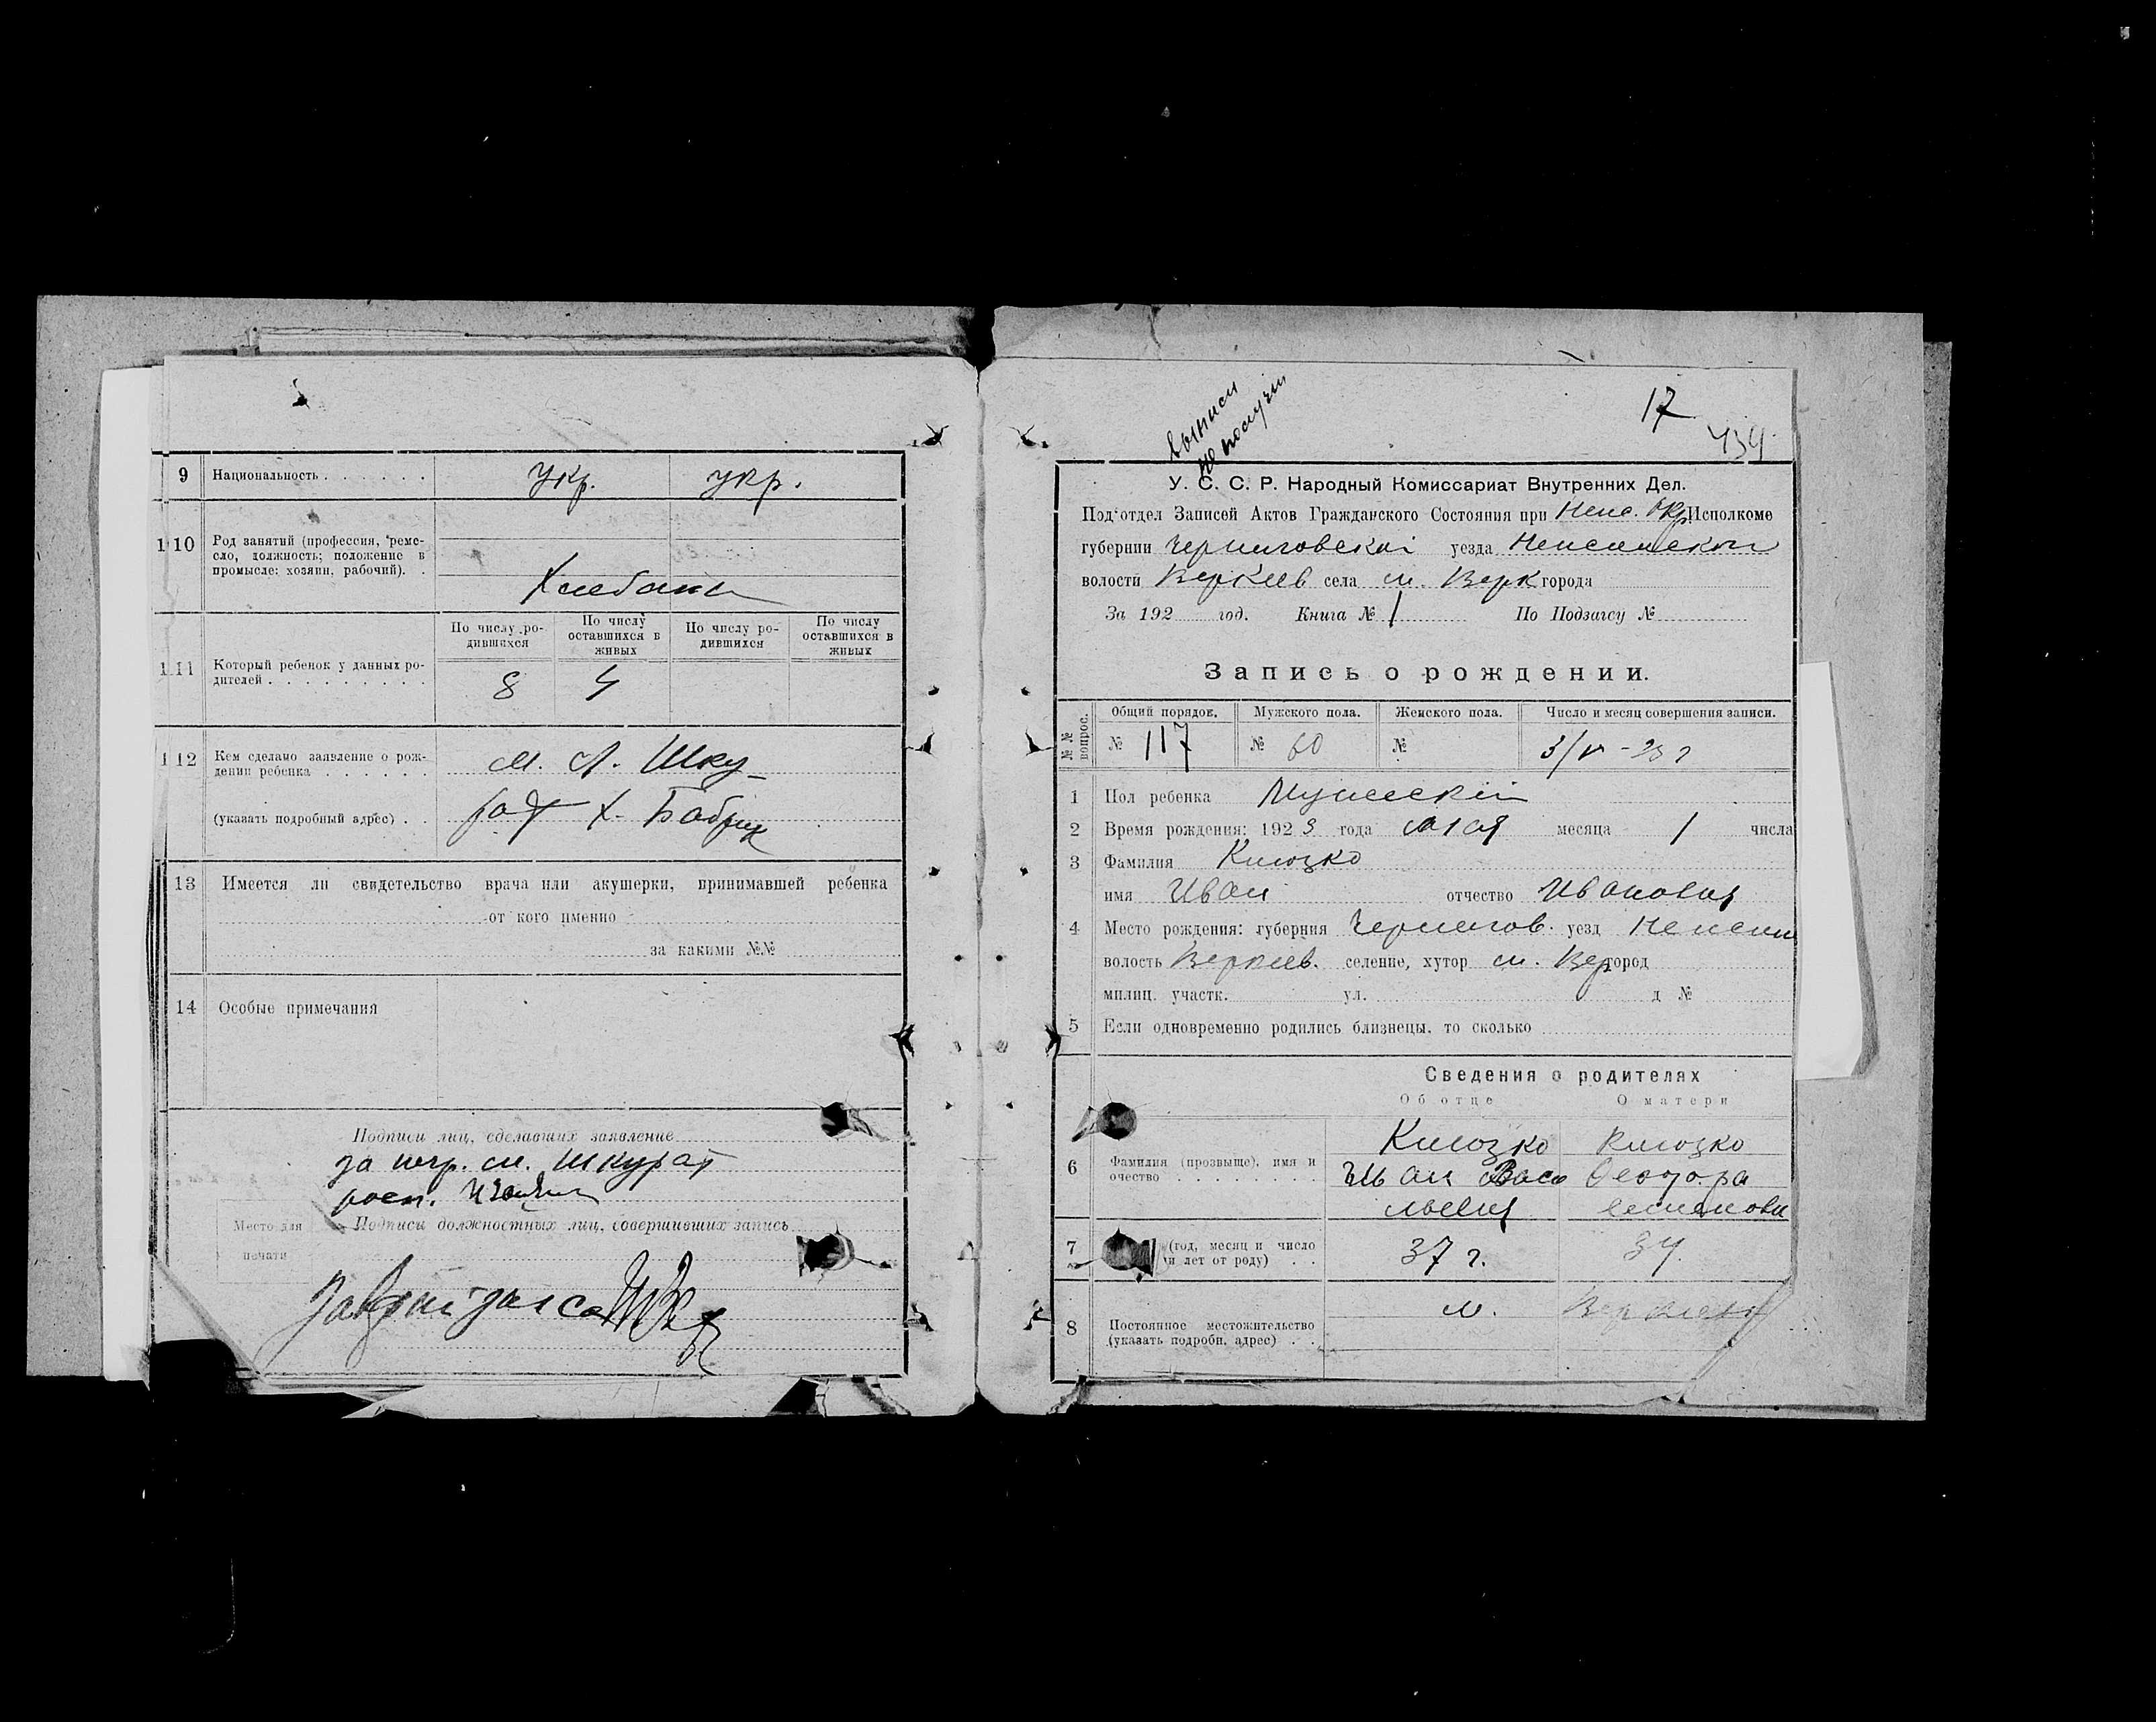 9 Национальность . . . . . . укр. укр.
10 Род занятий (профессия, ремесло, должность; положение в промысле: хозяин, рабочий). .
Хлебопаш
По числу родившихся По числу оставшихся в живых По числу родившихся По числу оставшихся в живых
11 Который ребенок у данных родителей . . . . . . . . .
8 4
12 Кем сделано заявление о рождении ребенка . . . . . . М. Л. Шку-
(указать подробный адрес) . . рат х. Бобрик
13 Имеется ли свидетельство врача или акушерки, принимавшей ребенка
от кого именно
за какими №№
14 Особые примечания
Подписи лиц, сделавших заявление
за негр. м. Шкурат
росп.
Место для печати
Подписи должностных лиц, совершивших запись
выписи
не получил
17
434
У. С. С. Р. Народный Комиссариат Внутренних Дел.
Под‘отдел Записей Актов Гражданского Состояния при Неж. Окр Исполкоме
губернии Черниговской уезда Неженской
волости Веркиев села м. Верк города
За 192 год. Книга № 1 По Подзагсу №
Запись о рождении.
№№ вопрос. Общий порядок. Мужского пола. Женского пола. Число и месяц совершения записи.
№ 117 № 60 № 3/V - 23 г
1 Пол ребенка Мужеский
2 Время рождения: 1923 года мая месяца 1 числа
3 Фамилия Кислозко
имя Иван отчество Иванович
4 Место рождения: губерния Чернигов. уезд Нежин
волость Веркиев. селение, хутор м. Вер город
милиц. участк. ул. д №
5 Если одновременно родились близнецы, то сколько
Сведения о родителях
Об отце О матери
6 Фамилия (прозвище), имя и очество . . . . . . . .
Кислозко Кислозко
Иван Васи Феодора
льевич Семенови
7 (год, месяц и число и лет от роду) . . 37 г. 34.
8 Постоянное местожительство (указать подробн. адрес) . .
м. Веркиевк